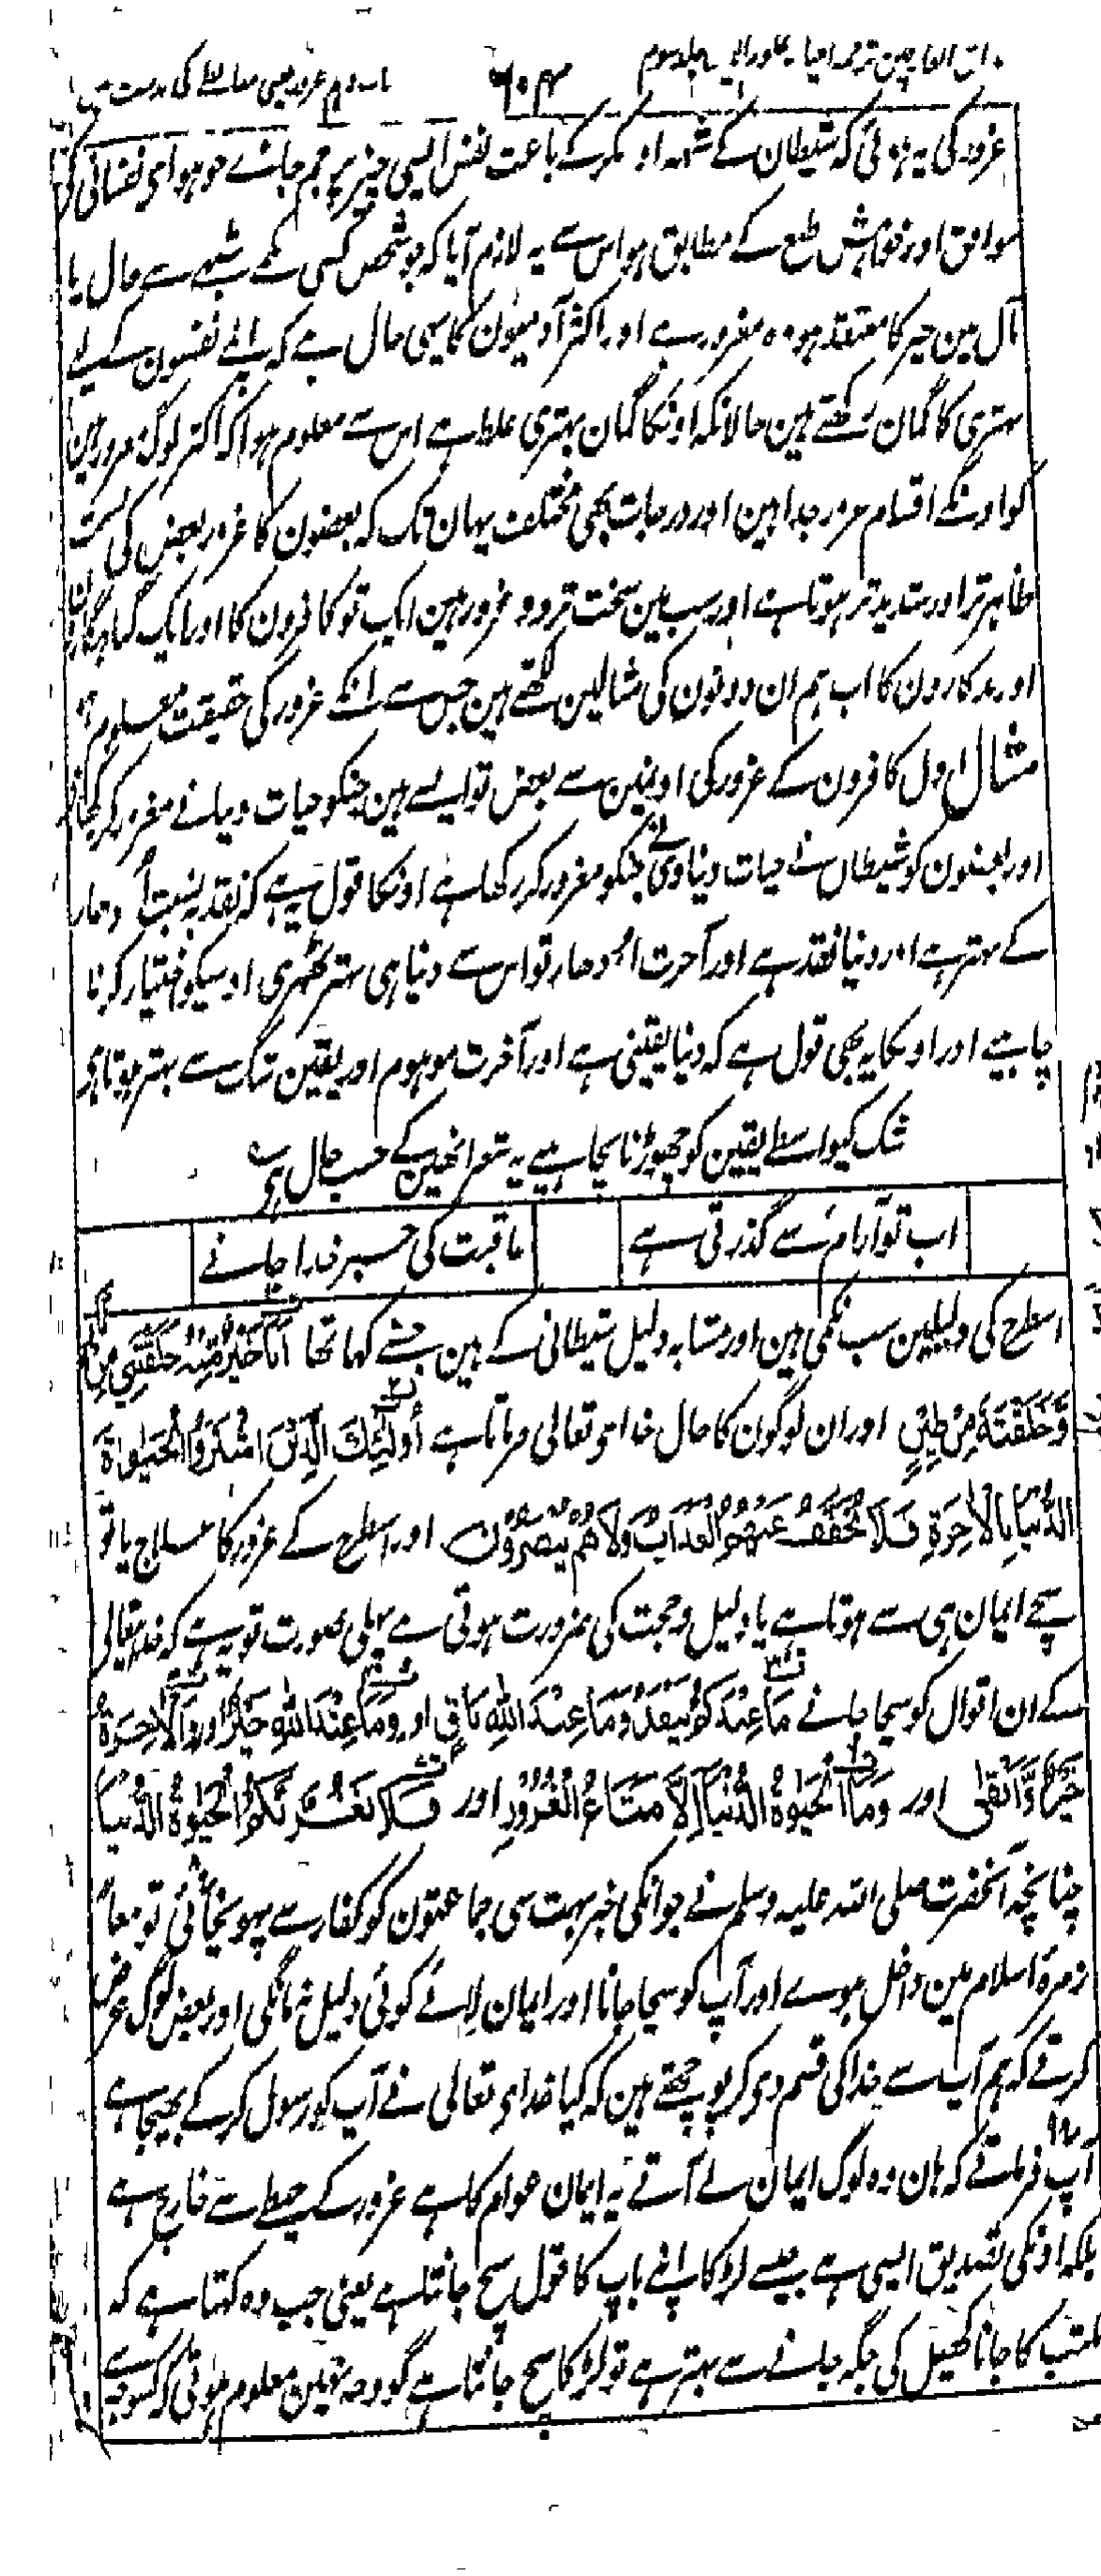 مذاق العارفین ترجمہ احیاء علوم الدین جلد سوم ۶۰۴ باب دہم غرور یعنی مغالطے کی مذمت میں
غرور کی یہ ہوئی کہ شیطان کے شبہہ اور مکر کے باعث نفس ایسی چیز پر جم جائے جو ہوای نفسانی کی
موافق اور خواہش طبع کے مطابق ہو اس سے یہ لازم آیا کہ جو شخص کسی نکمے شبہے سے حال یا
مآل مین خیر کا معتقد ہو وہ مغرور ہے اور اکثر آدمیون کا یہی حال ہے کہ اپنے نفسون کے لیے
بہتری کا گمان رکھتے ہین حالانکہ اونکا گمان بہتری غلط ہے اس سے معلوم ہوا کہ اکثر لوگ مغرور ہین
گو اونکے اقسام غرور جدا ہین اور درجات بھی مختلف یہان تک کہ بعضون کا غرور بعض کی نسبت
ظاہر تر اور شدید تر ہوتا ہے اور سب مین سخت تر دو غرور ہین ایک تو کافرون کا اور ایک گناہگارون
اور بدکارون کا اب ہم ان دونون کی مثالین لکھتے ہین جس سے انکے غرور کی حقیقت معلوم ہو
مثال اول کافرون کے غرور کی اونمین سے بعض تو ایسے ہین جنکو حیات دنیا نے مغرور کر
اور بعضون کو شیطان نے حیات دنیاوی نے جنکو مغرور کر رکھا ہے اونکا قول یہ ہے کہ نقد بہ نسبت اُدھار
کے بہتر ہے اور دنیا نقد ہے اور آخرت اُدھار تو اس سے دنیا ہی بہتر ٹھہری اوسیکو اختیار کرنا
چاہیے اور اونکا یہ بھی قول ہے کہ دنیا یقینی ہے اور آخرت موہوم اور یقین شک سے بہتر ہوتا ہی
شک کیواسطے یقین کو چھوڑنا نچاہیے یہ شعر انھین کے حسب حال ہی
اب تو آرام سے گذرتی ہے عاقبت کی خبر خدا جانے
اسطرح کی دلیلین سب نکمی ہین اور مشابہ دلیل شیطانی کے ہین جسنے کہا تھا اَنَا خَیْرٌ مِّنْہُ خَلَقْتَنِیْ مِنْ نَّارٍ
وَّخَلَقْتَہٗ مِنْ طِیْنٍ اور ان لوگون کا حال خدای تعالی فرماتا ہے أُولٰئِكَ الَّذِیْنَ اشْتَرَوُا الْحَیٰوۃَ
الدُّنْیَا بِالْاٰخِرَۃِ فَلَا یُخَفَّفُ عَنْہُمُ الْعَذَابُ وَلَا ھُمْ یُنْصَرُوْنَ اور اسطرح کے غرور کا علاج یا تو
سچے ایمان ہی سے ہوتا ہے یا دلیل و حجت کی ضرورت ہوتی ہے پہلی صورت تو یہ ہے کہ خدایتعالی
کے ان اقوال کو سچا جانے مَا عِنْدَکُمْ یَنْفَدُ وَمَا عِنْدَ اللّٰہِ بَاقٍ اور وَمَا عِنْدَ اللّٰہِ خَیْرٌ اور وَالْاٰخِرَۃُ
خَیْرٌ وَّاَبْقٰی اور وَمَا الْحَیٰوۃُ الدُّنْیَا اِلَّا مَتَاعُ الْغُرُوْرِ اور فَلَا تَغُرَّنَّکُمُ الْحَیٰوۃُ الدُّنْیَا
چنانچہ آنحضرت صلی اللہ علیہ وسلم نے جو انکی خبر بہت سی جماعتون کو کفار سے پہونچائی تو معاً
زمرۂ اسلام مین داخل ہوے اور آپ کو سچا جانا اور ایمان لائے کوئی دلیل نہ مانگی اور بعض لوگ عرض
کرتے کہ ہم آپ سے خدا کی قسم دی کر پوچھتے ہین کہ کیا خدای تعالی نے آپ کو رسول کر کے بھیجا ہے
آپ فرماتے کہ ہان وہ لوگ ایمان لے آتے یہ ایمان عوام کا ہے غرور کے حیطے سے خارج ہے
بلکہ اونکی تصدیق ایسی ہے جیسے لڑکا اپنے باپ کا قول سچ جانتا ہے یعنی جب وہ کہتا ہے کہ
مکتب کا جانا کھیل کی جگہ جانے سے بہتر ہے تو لڑکا سچ جانتا ہے گو وجہ نہین معلوم ہوتی کہ کسوجہ سے